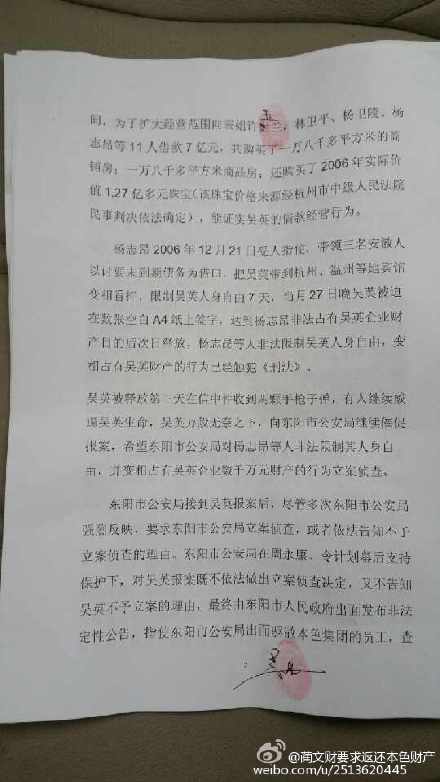 间，为了扩大经营范围向
林卫平、杨卫陵、杨
志昂等11人借款7亿元，共购买了一万八千多平方米的商
铺房；一万八千多平方米商品房；还购买了2006年实际价
值1.27亿多元珠宝（该珠宝价格来源经杭州市中级人民法院
民事判决依法确定），能证实吴英的借款经营行为。
杨志昂2006年12月21日受人指使，带领三名安徽人
以讨要未到期债务为借口，把吴英带到杭州、温州等地宾馆
变相看押，限制吴英人身自由7天，当月27日晚吴英被迫
在数张空白A4纸上签字，达到杨志昂非法占有吴英企业财
产目的后次日释放，杨志昂等人非法限制吴英人身自由，变
相占有吴英财产的行为已经触犯《刑法》。
吴英被释放第二天在信中件收到两颗手枪子弹，有人继续威
逼吴英生命，吴英万般无奈之下，向东阳市公安局继续催促
报案，希望东阳市公安局对杨志昂等人非法限制其人身自
由，并变相占有吴英企业数千万元财产的行为立案侦查。
东阳市公安局接到吴英报案后，尽管多次东阳市公安局
强烈反映，要求东阳市公安局立案侦查，或者依法告知不予
立案侦查的理由。东阳市公安局在周永康、令计划幕后支持
保护下，对吴英报案既不依法做出立案侦查决定，又不告知
吴英不予立案的理由，最终由东阳市人民政府出面发布非法
定性公告，指使东阳市公安局出面驱散本色集团的员工，查
@蔺文财要求返还本色财产
weibo.com/u/2513620445